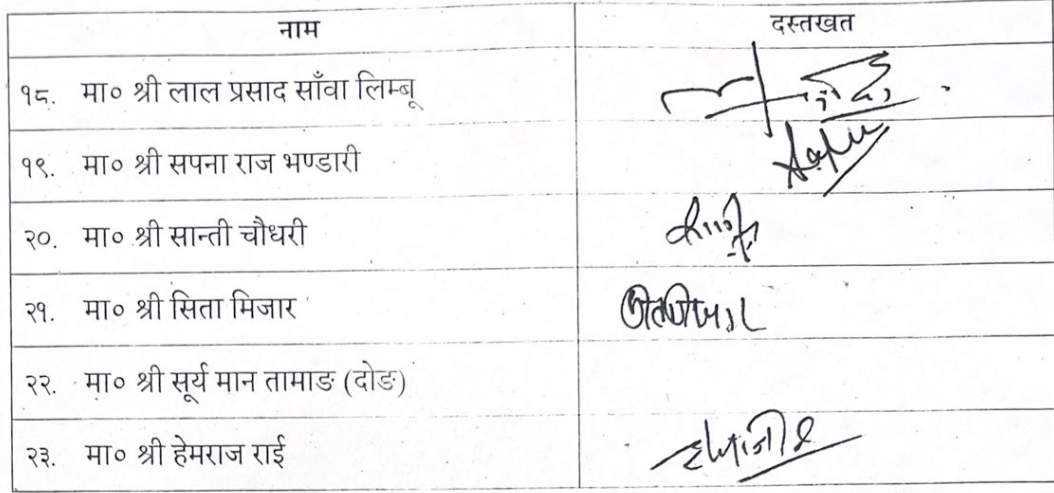 नाम दस्तखत
१८. मा० श्री लाल प्रसाद साँवा लिम्बू
१९. मा० श्री सपना राज भण्डारी
२०. मा० श्री सान्ती चौधरी
२१. मा० श्री सिता मिजार
२२. मा० श्री सूर्य मान तामाङ (दोङ)
२३. मा० श्री हेमराज राई